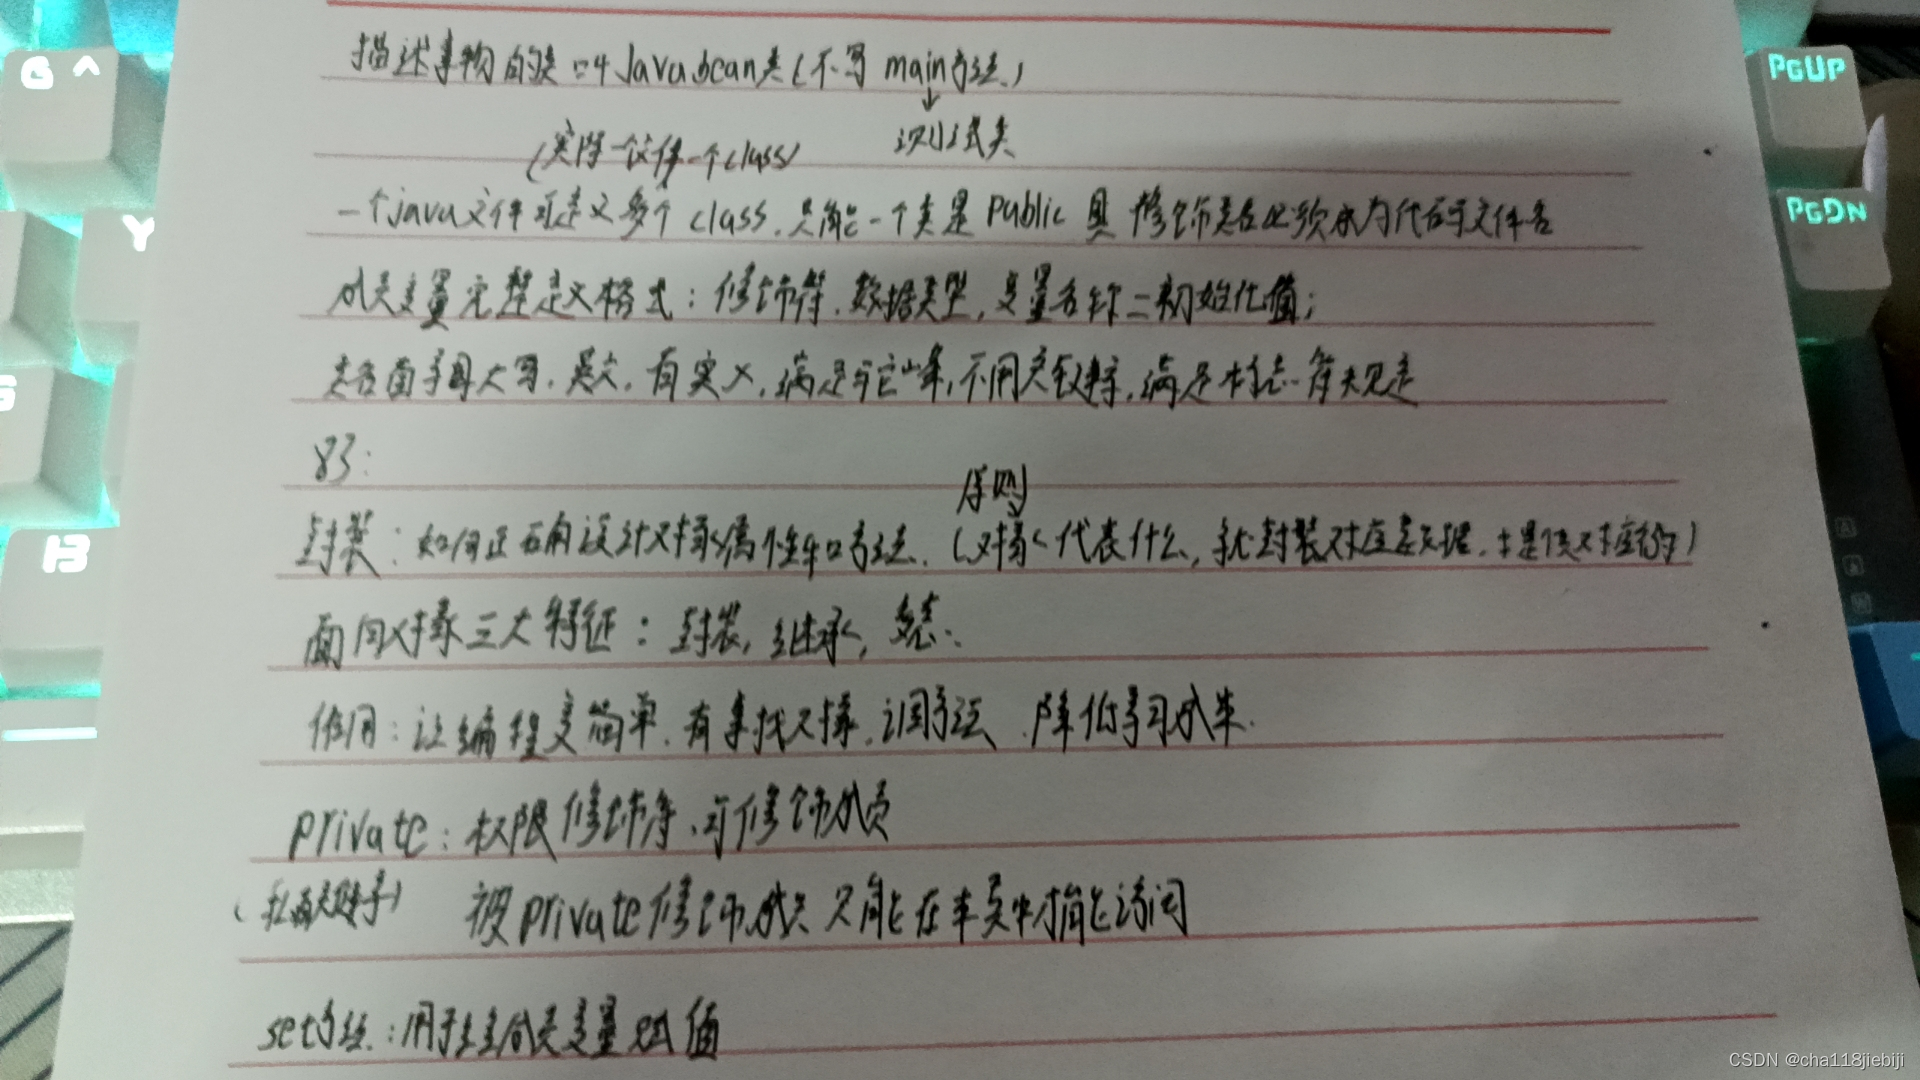 描述事物的类叫Javabean类(不写main方法)
测试类
(实际一文件一个class)
一个java文件可定义多个class.只能一个类是public且修饰类名必须成为代码文件名
成员变量完整定义格式:修饰符.数据类型,变量名称=初始化值;
类名首字母大写.英文.有实义,满足驼峰,不用关键字.满足标志符规定
83:
原则
封装:如何正确设计对象属性和方法.(对象代表什么,就封装对应数据.
面向对象三大特征:封装,继承,多态.
作用:让编程变简单.有事找对象.调方法.降低学习成本.
private:权限修饰符.可修饰成员
被private修饰成员只能在本类中才能访问
set方法:用于给成员变量赋值
G ^
Y
S
B
PGUP
PGDN
CSDN @cha118jiebiji